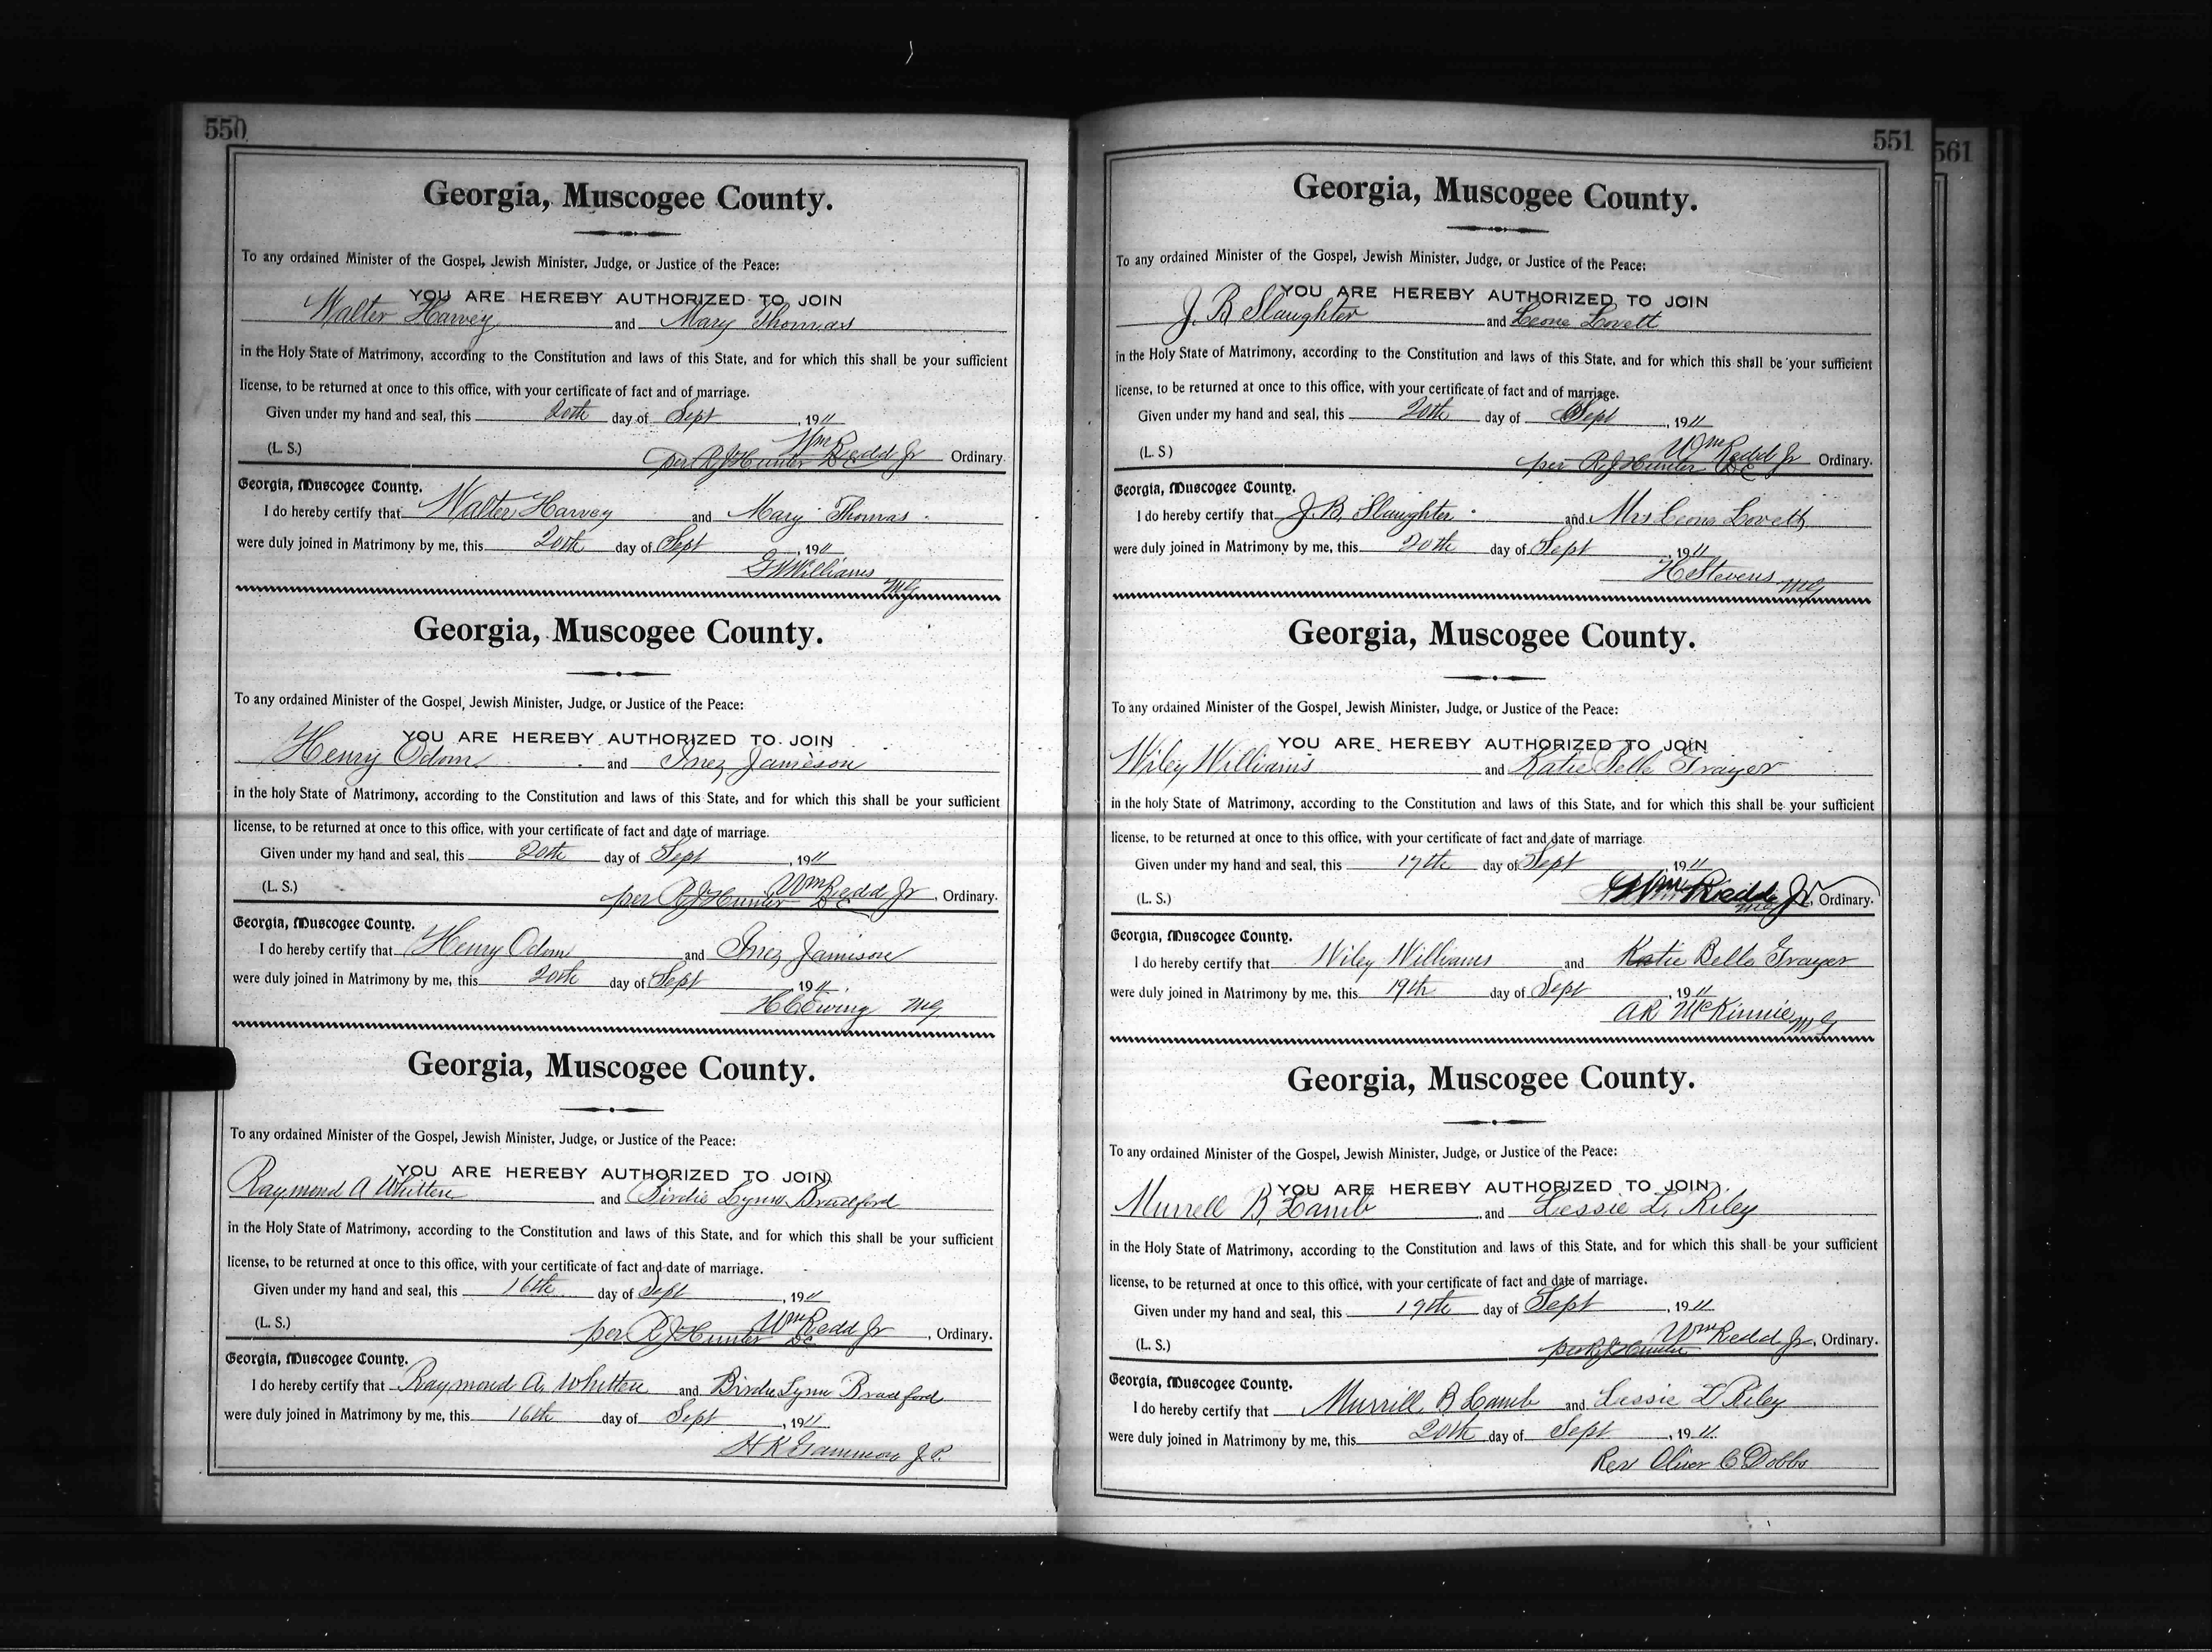 550
Georgia, Muscogee County.
To any ordained Minister of the Gospel, Jewish Minister, Judge, or Justice of the Peace:
YOU ARE HEREBY AUTHORIZED TO JOIN
Walter Harvey and Mary Thomas
in the Holy State of Matrimony, according to the Constitution and laws of this State, and for which this shall be your sufficient
license, to be returned at once to this office, with your certificate of fact and of marriage.
Given under my hand and seal, this 20th day of Sept, 1911
(L. S.) Wm Redd Jr Ordinary.
per R J Hunter DC
Georgia, Muscogee County.
I do hereby certify that Walter Harvey and Mary Thomas
were duly joined in Matrimony by me, this 20th day of Sept, 1911
G W Williams
MG
Georgia, Muscogee County.
To any ordained Minister of the Gospel, Jewish Minister, Judge, or Justice of the Peace:
YOU ARE HEREBY AUTHORIZED TO JOIN
Henry Odom and Inez Jamieson
in the holy State of Matrimony, according to the Constitution and laws of this State, and for which this shall be your sufficient
license, to be returned at once to this office, with your certificate of fact and date of marriage.
Given under my hand and seal, this 20th day of Sept, 1911
(L. S.) Wm Redd Jr, Ordinary.
per R J Hunter DC
Georgia, Muscogee County.
I do hereby certify that Henry Odom and Inez Jamison
were duly joined in Matrimony by me, this 20th day of Sept, 1911
H C Ewing MG
Georgia, Muscogee County.
To any ordained Minister of the Gospel, Jewish Minister, Judge, or Justice of the Peace:
YOU ARE HEREBY AUTHORIZED TO JOIN
Raymond A Whitten and Birdie Lynn Bradford
in the Holy State of Matrimony, according to the Constitution and laws of this State, and for which this shall be your sufficient
license, to be returned at once to this office, with your certificate of fact and date of marriage.
Given under my hand and seal, this 16th day of Sept, 1911
(L. S.) Wm Redd Jr, Ordinary.
per R J Hunter DC
Georgia, Muscogee County.
I do hereby certify that Raymond A. Whitten and Birdie Lynn Bradford
were duly joined in Matrimony by me, this 16th day of Sept, 1911
H K Gammon J.P.
551
Georgia, Muscogee County.
To any ordained Minister of the Gospel, Jewish Minister, Judge, or Justice of the Peace:
YOU ARE HEREBY AUTHORIZED TO JOIN
J. B Slaughter and Leone Lovett
in the Holy State of Matrimony, according to the Constitution and laws of this State, and for which this shall be your sufficient
license, to be returned at once to this office, with your certificate of fact and of marriage.
Given under my hand and seal, this 20th day of Sept, 1911
(L. S) Wm Redd Jr Ordinary.
per R J Hunter DC
Georgia, Muscogee County.
I do hereby certify that J. B. Slaughter and Mrs Leona Lovett
were duly joined in Matrimony by me, this 20th day of Sept, 1911
H Stevens MG
Georgia, Muscogee County.
To any ordained Minister of the Gospel, Jewish Minister, Judge, or Justice of the Peace:
YOU ARE HEREBY AUTHORIZED TO JOIN
Wiley Williams and Katie Belle Grayer
in the holy State of Matrimony, according to the Constitution and laws of this State, and for which this shall be your sufficient
license, to be returned at once to this office, with your certificate of fact and date of marriage.
Given under my hand and seal, this 19th day of Sept, 1911
(L. S.) Wm Redd Jr, Ordinary.
Georgia, Muscogee County.
I do hereby certify that Wiley Williams and Katie Belle Grayer
were duly joined in Matrimony by me, this 19th day of Sept, 1911
AR McKinnie MG
Georgia, Muscogee County.
To any ordained Minister of the Gospel, Jewish Minister, Judge, or Justice of the Peace:
YOU ARE HEREBY AUTHORIZED TO JOIN
Murrell B, Lamb and Lessie L, Riley
in the Holy State of Matrimony, according to the Constitution and laws of this State, and for which this shall be your sufficient
license, to be returned at once to this office, with your certificate of fact and date of marriage.
Given under my hand and seal, this 19th day of Sept, 1911
(L. S.) Wm Redd Jr, Ordinary.
per R J Hunter
Georgia, Muscogee County.
I do hereby certify that Murrill B Lamb and Lessie L Riley
were duly joined in Matrimony by me, this 20th day of Sept, 1911.
Rev Oliver C Dobbs
561